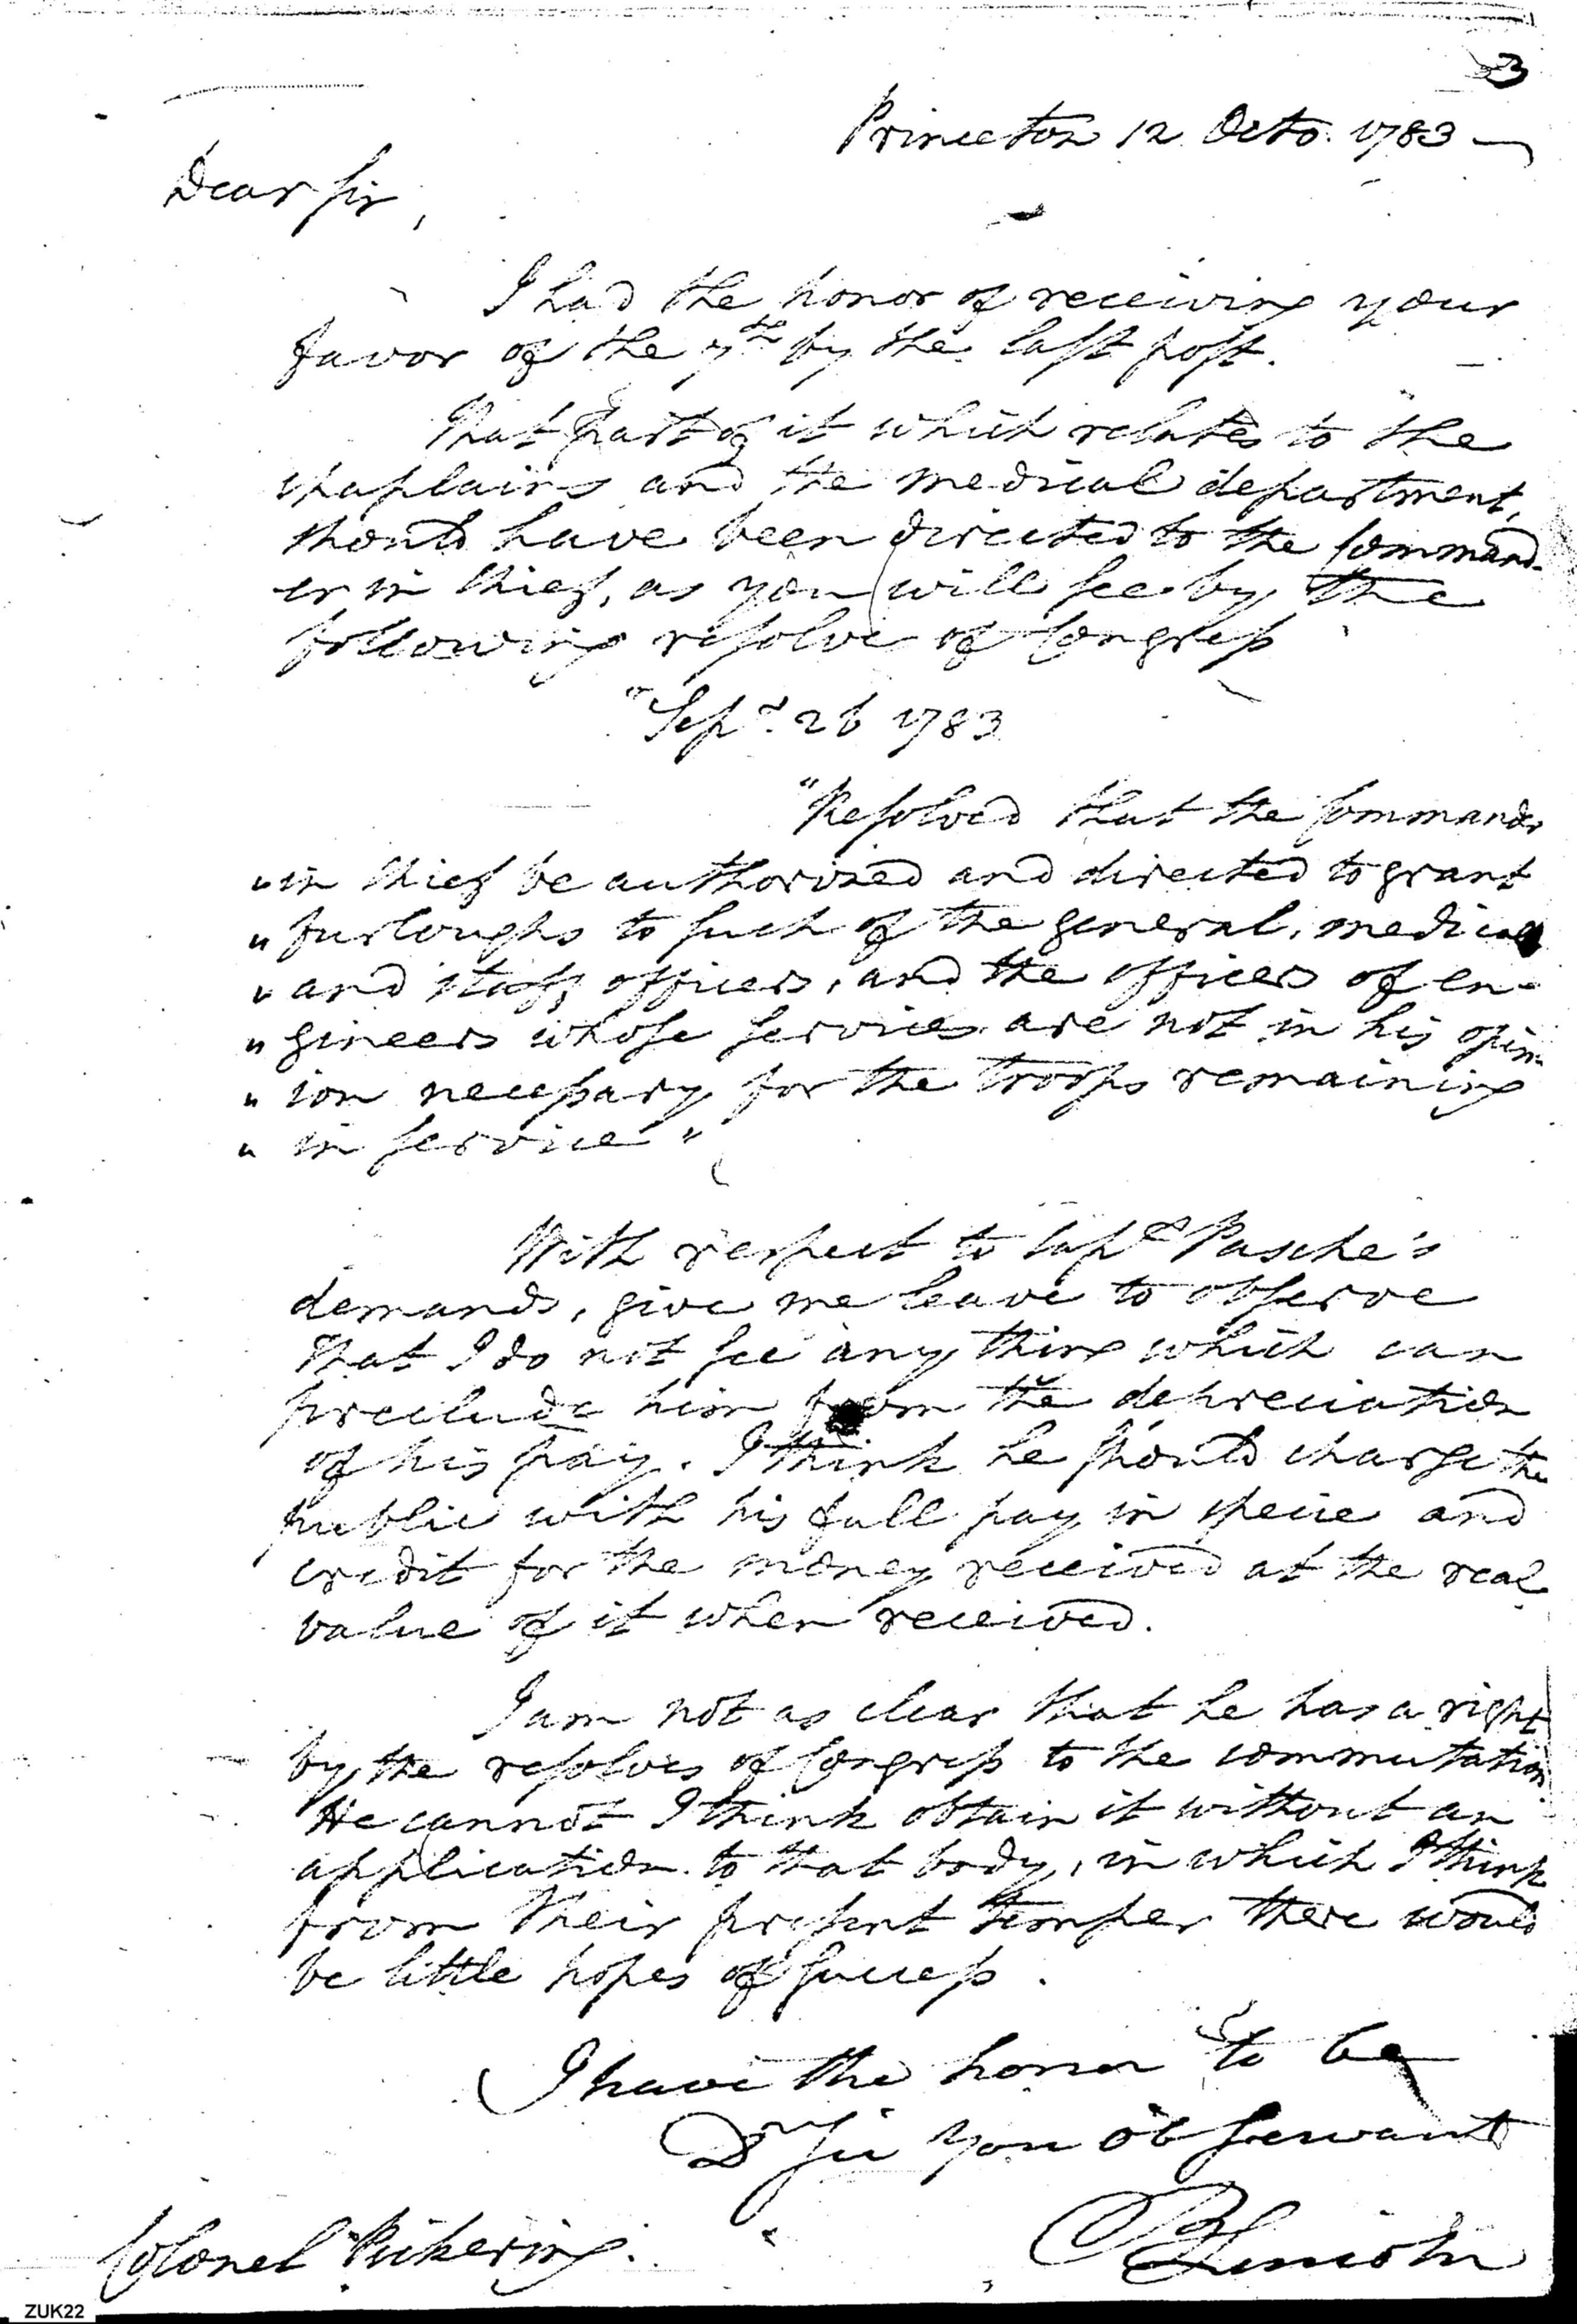 3
Princeton 12 Octo. 1783
Dear Sir,
I had the honor of receiving your
favor of the 7th by the last post.
That part of it which relates to the
chaplains and the medical department,
should have been directed to the Command-
er in chief, as you will see by the
following resolve of Congress
"Sept. 26 1783
"Resolved that the Commander
"in chief be authorized and directed to grant
"furloughs to such of the general, medical
"and staff officers, and the officers of en-
"gineers whose services are not in his opin-
"ion necessary for the troops remaining
"in service"
With respect to Capt Pasche's
demands, give me leave to observe
that I do not see any thing which can
preclude him from the depreciation
of his pay. I think he should charge the
public with his full pay in specie and
credit for the money received at the real
value of it when received.
I am not as clear that he has a right
by the resolves of Congress to the commutation
He cannot I think obtain it without an
application to that body, in which I think
from their present temper there would
be little hopes of success.
I have the honor to be
Dr Sir your ob servant
B Lincoln
Colonel Pickering.
ZUK22